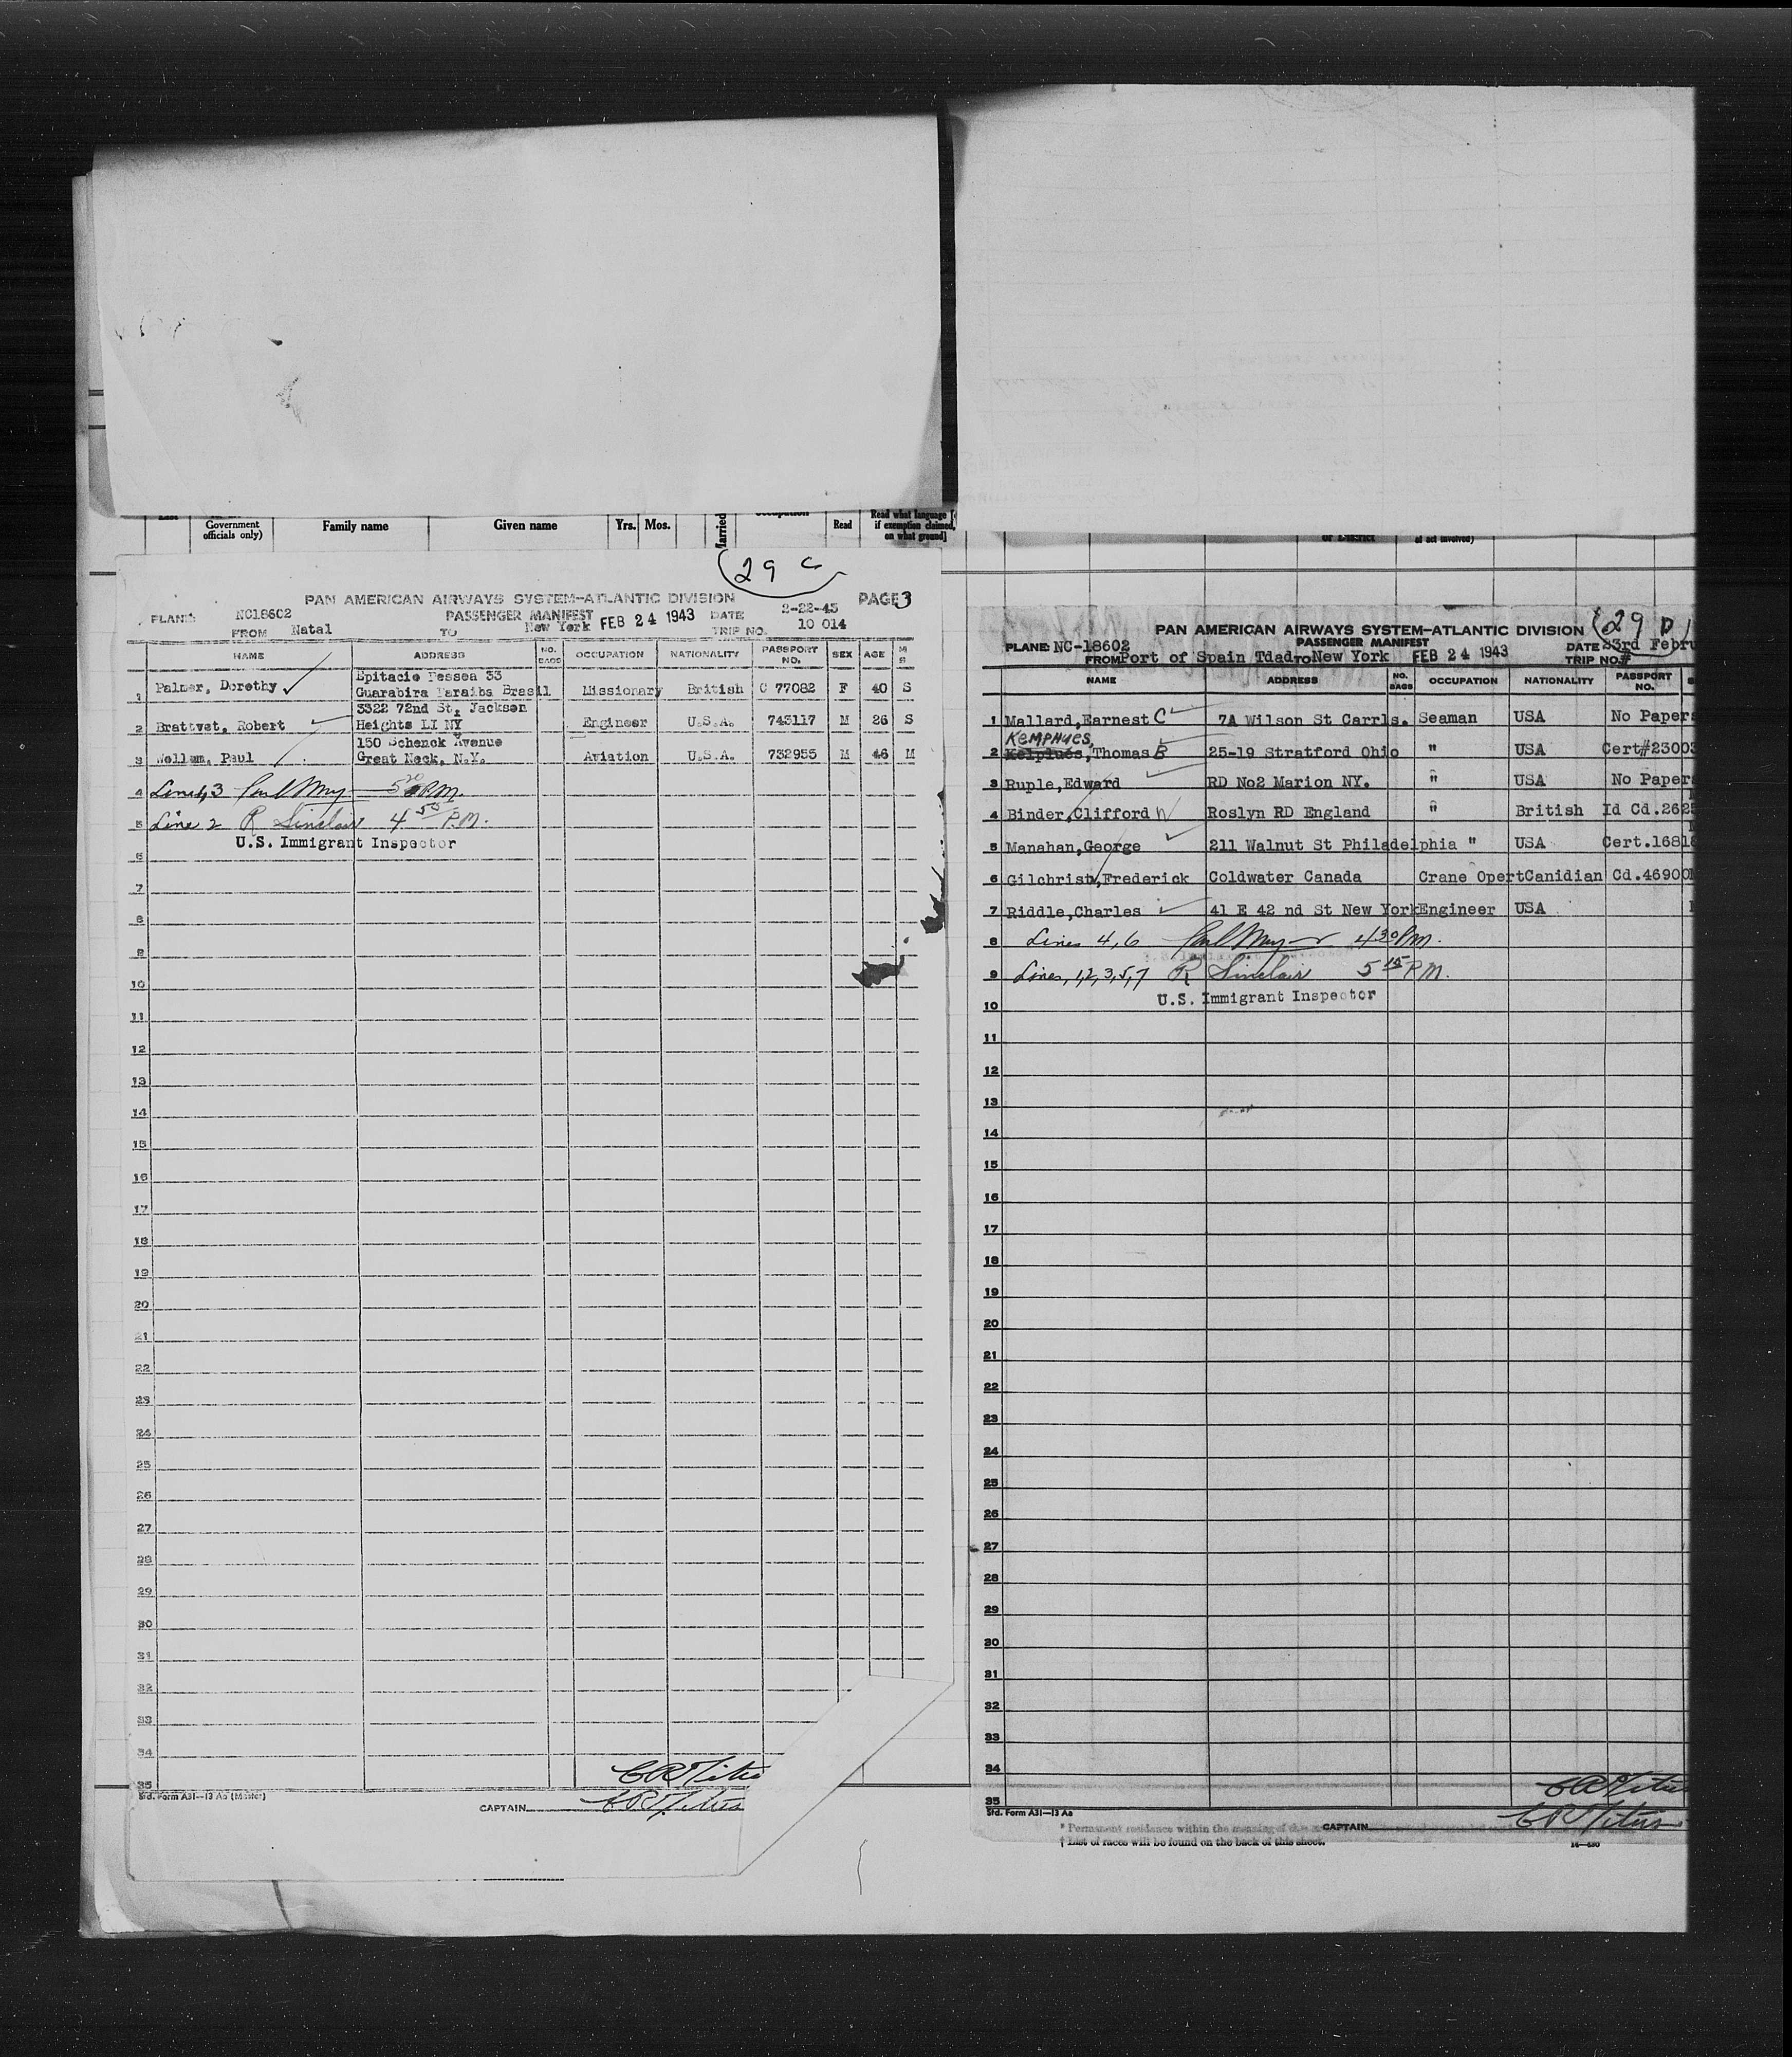 Government
officials only)
Family name
Given name
Yrs. Mos.
Read
Read what language [
if exemption claimed,
on what ground]
29 C
PAN AMERICAN AIRWAYS SYSTEM—ATLANTIC DIVISION PAGE 3
PLANE: NC18602 PASSENGER MANIFEST FEB 24 1943 DATE 2-22-43
FROM Natal TO New York TRIP NO. 10 014
NAME ADDRESS NO. BAGS OCCUPATION NATIONALITY PASSPORT NO. SEX AGE M S
Epitacio Pessea 33
1 Palmer, Dorothy Guarabira Paraiba Brasil Missionary British C 77082 F 40 S
3322 72nd St, Jackson
2 Brattvet, Robert Heights LI NY Engineer U.S.A. 743117 M 26 S
150 Schenck Avenue
3 Wollam, Paul Great Neck, N.Y. Aviation U.S.A. 732955 M 46 M
4 Lines 1, 3 P.M.
5 Line 2 R Sinclair 4 50 P.M.
U.S. Immigrant Inspector
6
7
8
9
10
11
12
13
14
15
16
17
18
19
20
21
22
23
24
25
26
27
28
29
30
31
32
33
34
35
CR Titus
Std. Form A31—13 Aa (Master)
CAPTAIN CR Titus
of District
of act involved)
29 D
PAN AMERICAN AIRWAYS SYSTEM—ATLANTIC DIVISION
PLANE: NC-18602 PASSENGER MANIFEST DATE 23rd Febru
FROM Port of Spain Tdad TO New York FEB 24 1943 TRIP NO.#
NAME ADDRESS NO. BAGS OCCUPATION NATIONALITY PASSPORT NO. S
1 Mallard,Earnest C 7A Wilson St Carrls. Seaman USA No Papers
KEMPHUES,
2 Kelphues,Thomas B 25-19 Stratford Ohio " USA Cert#23003
3 Ruple,Edward RD No2 Marion NY. " USA No Papers
4 Binder,Clifford W Roslyn RD England " British Id Cd.2625
5 Manahan,George 211 Walnut St Philadelphia " USA Cert.16818
6 Gilchrist,Frederick Coldwater Canada Crane Opert Canidian Cd.46900
7 Riddle,Charles 41 E 42 nd St New York Engineer USA
8 Lines 4, 6 4 30 P.M.
9 Lines, 1, 2, 3, 5, 7 R Sinclair 5 15 P.M.
U.S. Immigrant Inspector
10
11
12
13
14
15
16
17
18
19
20
21
22
23
24
25
26
27
28
29
30
31
32
33
34
35
CR Titus
Std. Form A31—13 Aa
CAPTAIN CR Titus
* Permanent residence within the meaning of this
† List of races will be found on the back of this sheet.